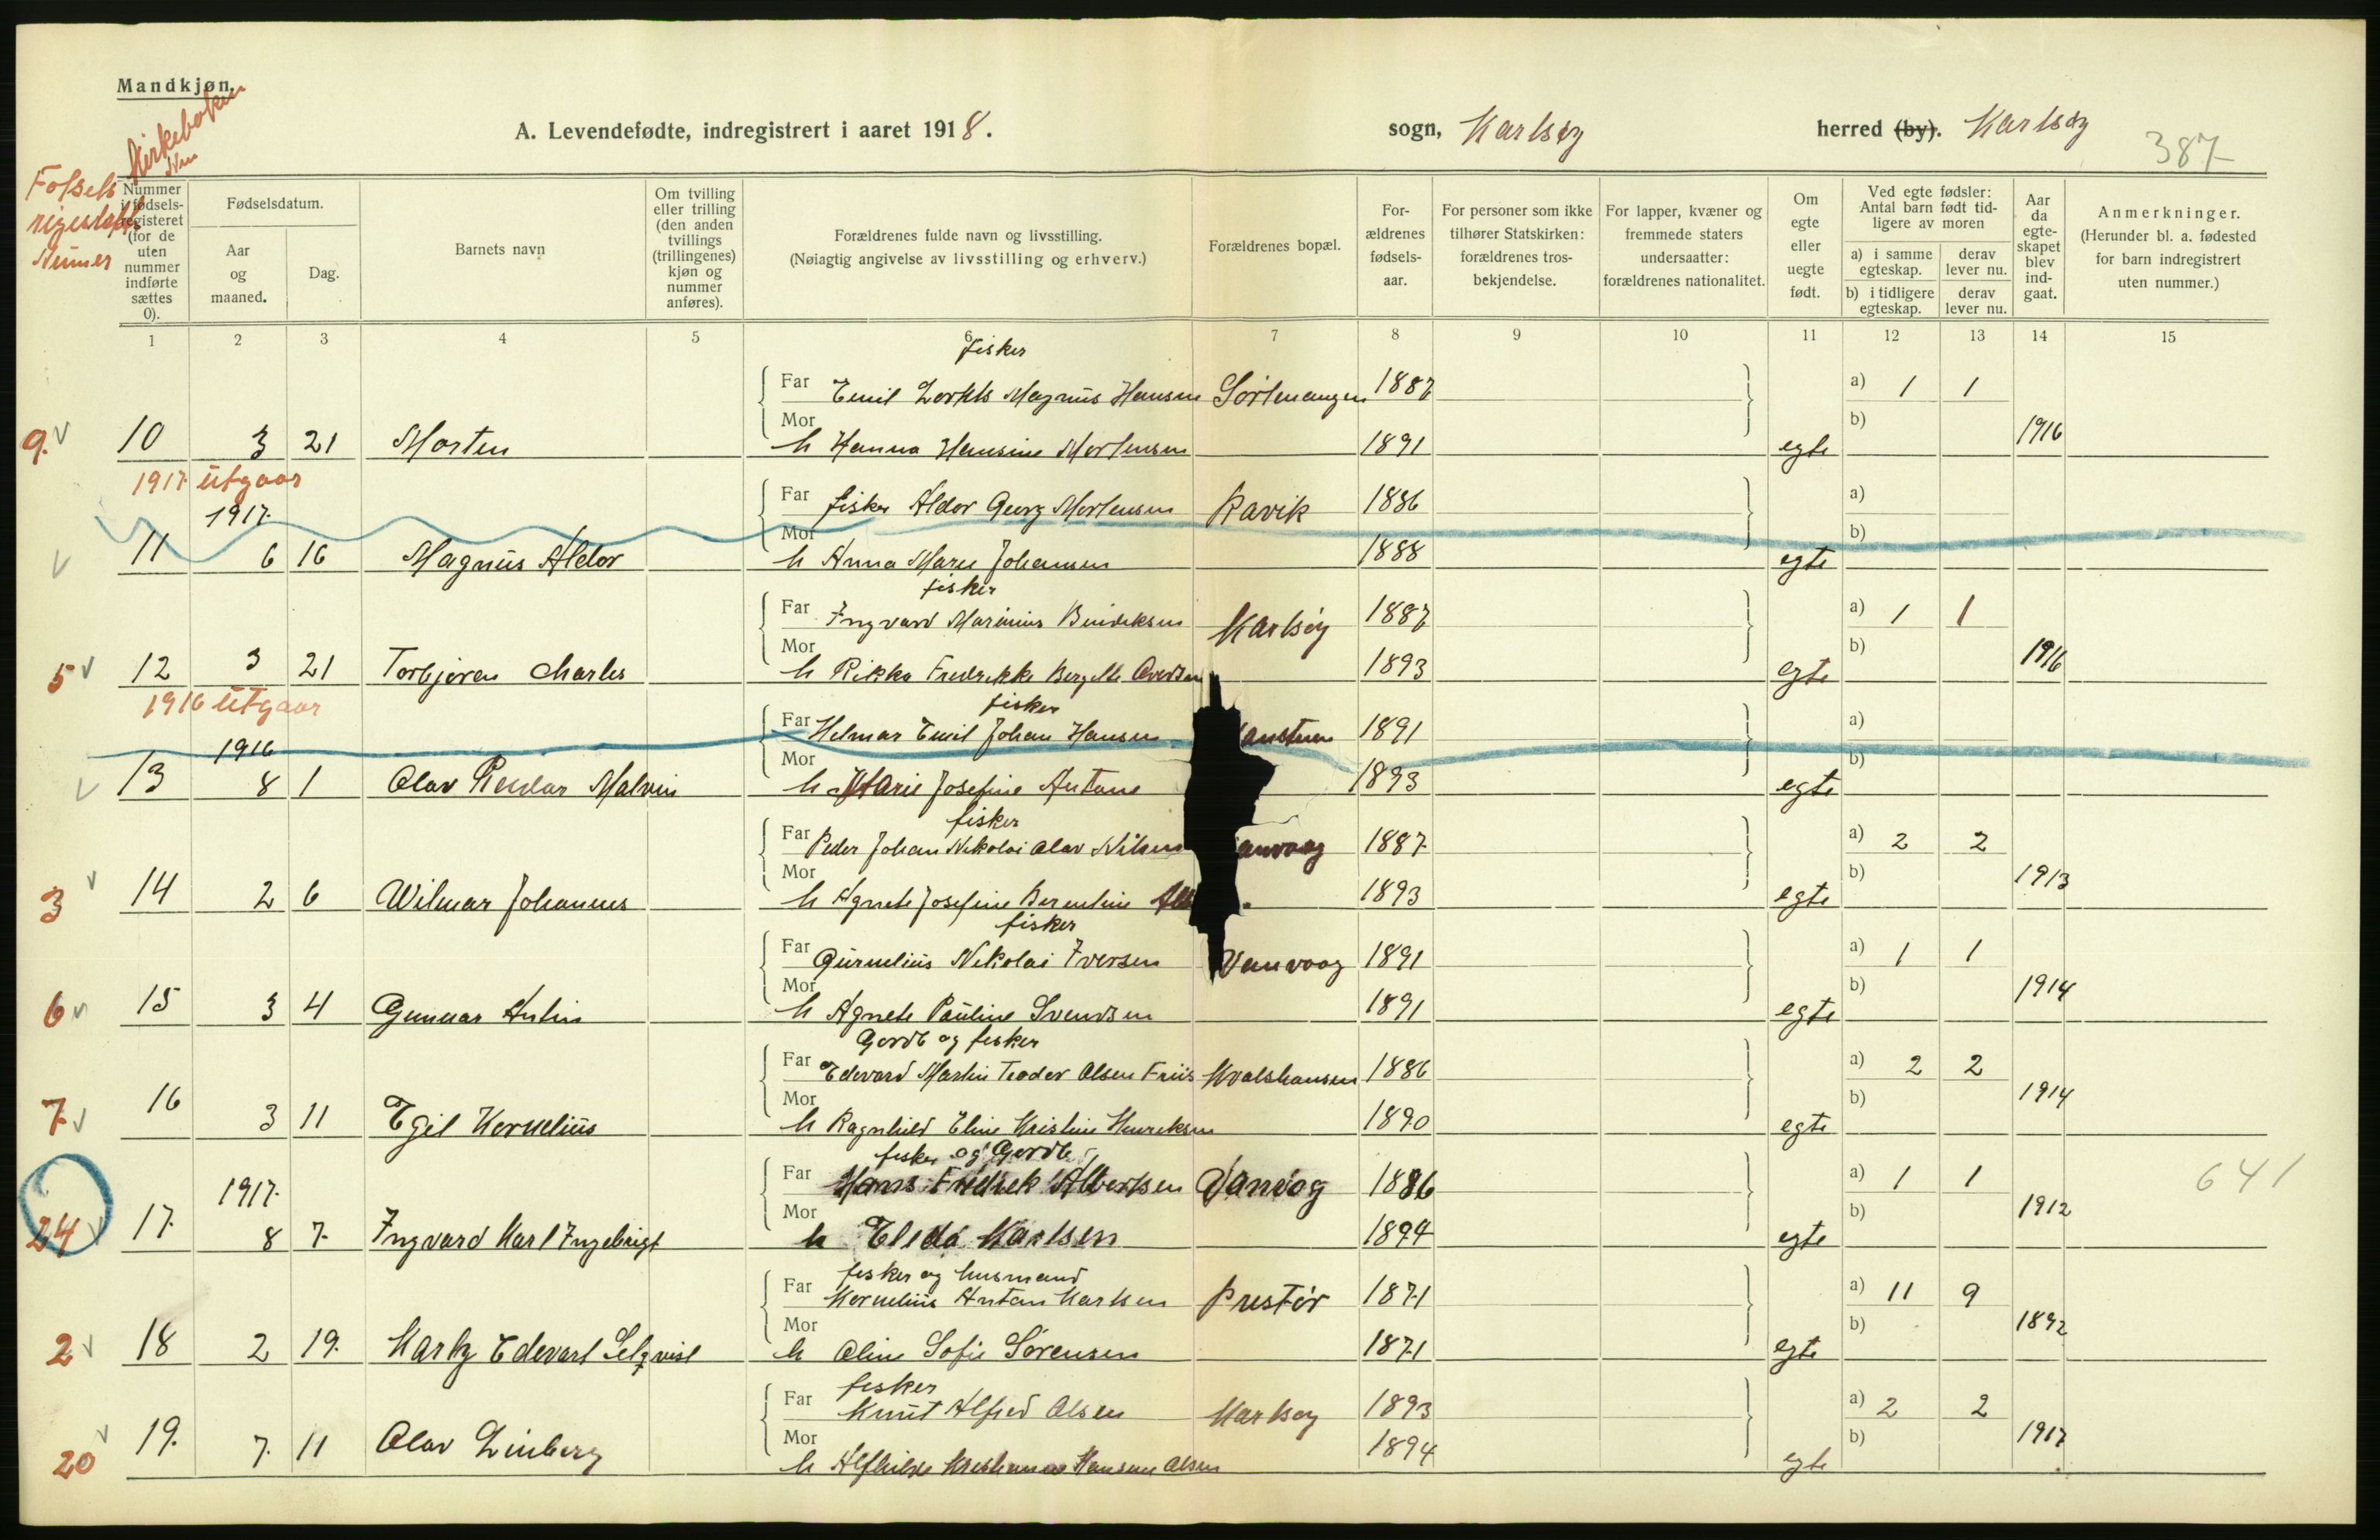 Mandkjøn.
Kirkeboken
Nm
A. Levendefødte, indregistrert i aaret 1918.
sogn, Karlsøy
herred (by). Karlsøy
387
Fødsels
Numer
Nummer i fødselsregisteret (for de uten nummer indførte sættes 0).
Fødselsdatum.
Aar og maaned.
Dag.
Barnets navn
Om tvilling eller trilling (den anden tvillings (trillingenes) kjøn og nummer anføres).
Forældrenes fulde navn og livsstilling.
(Nøiagtig angivelse av livsstilling og erhverv.)
Forældrenes bopæl.
Forældrenes fødselsaar.
For personer som ikke tilhører Statskirken: forældrenes trosbekjendelse.
For lapper, kvæner og fremmede staters undersaatter: forældrenes nationalitet.
Om egte eller uegte født.
Ved egte fødsler: Antal barn født tidligere av moren
a) i samme egteskap.
derav lever nu.
b) i tidligere egteskap.
derav lever nu.
Aar da egteskapet blev indgaat.
Anmerkninger.
(Herunder bl. a. fødested for barn indregistrert uten nummer.)
1 2 3 4 5 6 7 8 9 10 11 12 13 14 15
fisker
Far Emil Magnus Hansen 1887 a) 1 1
9. V 10 3 21 Morten Mor h Hanna Hansine Mortensen 1891 egte b) 1916
1917 utgaar
Far fisker Aldor Georg Mortensen Ravik 1886 a)
1917
V 11 6 16 Magnus Aldor Mor h Anna Marie Johansen 1888 egte b)
fisker
Far Ingvard Marinius Bendeksen Karlsøy 1887 a) 1 1
5 V 12 3 21 Torbjøren Charles Mor h Rikka Fredrikke Bergette 1893 egte b) 1916
1916 utgaar
fisker
Far Helmar Emil Johan Hansen 1891 a)
1916
V 13 8 1 Olav Reidar Malvin Mor h Marie Josefine Antone 1893 egte b)
fisker
Far Peder Johan Nikolai Olav Nilsen 1887 a) 2 2
3 V 14 2 6 Wilmar Johannes Mor h Agnete Josefine Berentine 1893 egte b) 1913
fisker
Far Gurnelius Nikolai Iversen Vanvaag 1891 a) 1 1
6 V 15 3 4 Gunnar Mor h Agnete Pauline Svendsen 1891 egte b) 1914
Gordb og fisker
Far Edevard Martin Teodor Olsen Friis Kvalshausen 1886 a) 2 2
7 V 16 3 11 Egil Kornelius Mor h Ragnhild Eline Kristine Henreksen 1890 egte b) 1914
fisker og Gordb
Far Hans Fredrek Albertsen Vanvåg 1886 a) 1 1 641
1917
24 V 17 8 7 Ingvard Karl Ingebrigt Mor h Elida Karlsen 1894 egte b) 1912
fisker og husmand
Far Kornelius Antan Karlsen 1871 a) 11 9
2 V 18 2 19 Edevart Mor h Oline Sofie Sørensen 1871 egte b) 1892
fisker
Far Knut Alfred Olsen Karlsøy 1893 a) 2 2
20 V 19. 7 11 Olav Linberg Mor h Alfhilde Hansen Olsen 1894 egte b) 1917